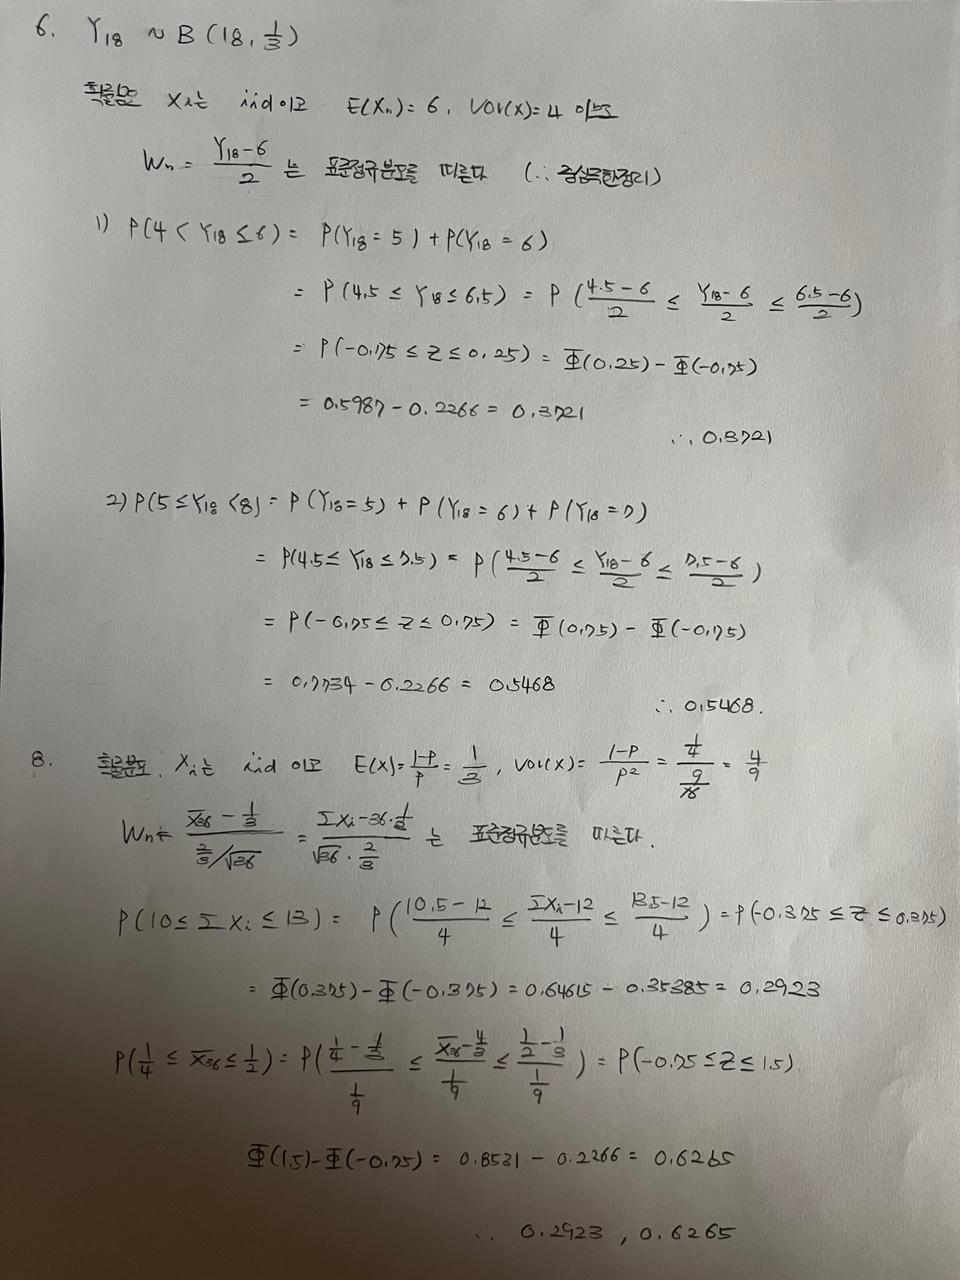 6. Y₁₈ ~ B(18, 1/3)
확률분포 Xᵢ는 iid 이고 E(Xₙ)=6, Var(X)=4 이므로
Wₙ = (Y₁₈-6)/2 는 표준정규분포를 따른다 (∵ 중심극한정리)
1) P(4 < Y₁₈ ≤ 6) = P(Y₁₈ = 5) + P(Y₁₈ = 6)
= P(4.5 ≤ Y₁₈ ≤ 6.5) = P((4.5-6)/2 ≤ (Y₁₈-6)/2 ≤ (6.5-6)/2)
= P(-0.75 ≤ Z ≤ 0.25) = Φ(0.25) - Φ(-0.75)
= 0.5987 - 0.2266 = 0.3721
∴ 0.3721
2) P(5 ≤ Y₁₈ < 8) = P(Y₁₈ = 5) + P(Y₁₈ = 6) + P(Y₁₈ = 7)
= P(4.5 ≤ Y₁₈ ≤ 7.5) = P((4.5-6)/2 ≤ (Y₁₈-6)/2 ≤ (7.5-6)/2)
= P(-0.75 ≤ Z ≤ 0.75) = Φ(0.75) - Φ(-0.75)
= 0.7734 - 0.2266 = 0.5468
∴ 0.5468.
8. 확률분포 Xᵢ는 iid 이고 E(X) = (1-P)/P = 1/3, Var(X) = (1-P)/P² = (1/4)/(9/16) = 4/9
Wₙ는 (X̄₃₆ - 1/3)/((2/3)/√36) = (ΣXᵢ - 36·1/3)/(√36 · 2/3) 는 표준정규분포를 따른다.
P(10 ≤ ΣXᵢ ≤ 13) = P((10.5-12)/4 ≤ (ΣXᵢ-12)/4 ≤ (13.5-12)/4) = P(-0.375 ≤ Z ≤ 0.375)
= Φ(0.375) - Φ(-0.375) = 0.64615 - 0.35385 = 0.2923
P(1/4 ≤ X̄₃₆ ≤ 1/2) = P((1/4 - 1/3)/(1/9) ≤ (X̄₃₆ - 4/3)/(1/9) ≤ (1/2 - 1/3)/(1/9)) = P(-0.75 ≤ Z ≤ 1.5)
Φ(1.5) - Φ(-0.75) = 0.8531 - 0.2266 = 0.6265
∴ 0.2923, 0.6265